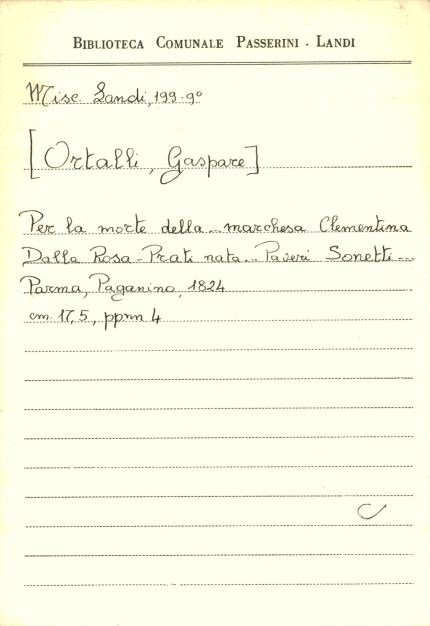 BIBLIOTECA COMUNALE PASSERINI - LANDI
Misc. Landi, 199-9º
[Ortalli, Gaspare]
Per la morte della ... marchesa Clementina
Dalla Rosa-Prati nata ... Paveri Sonetti ...
Parma, Paganino, 1824
cm. 17,5, ppnn 4
C